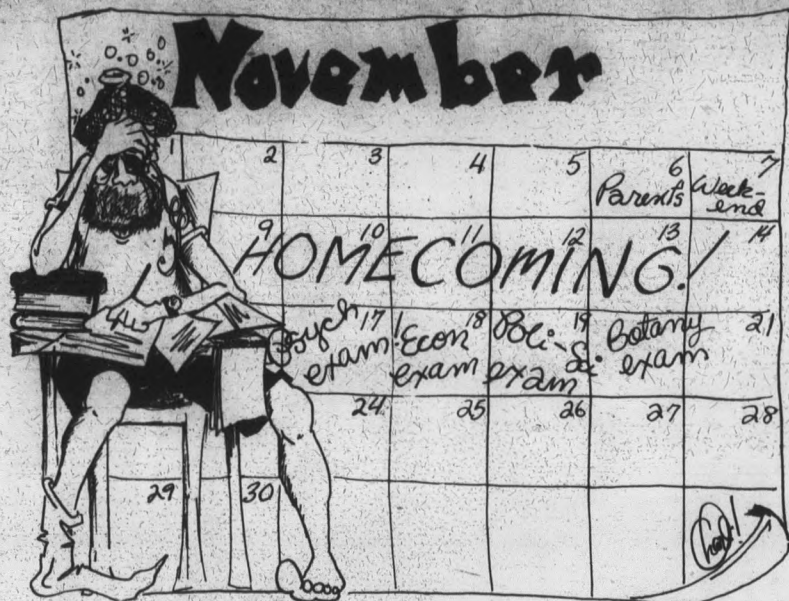 November
1 2 3 4 5 6 7
Parent's Week-
end
9 10 11 12 13 14
HOMECOMING!
17 18 19 21
Psych exam
Econ exam
Poli-Sci exam
Botany exam
24 25 26 27 28
29 30